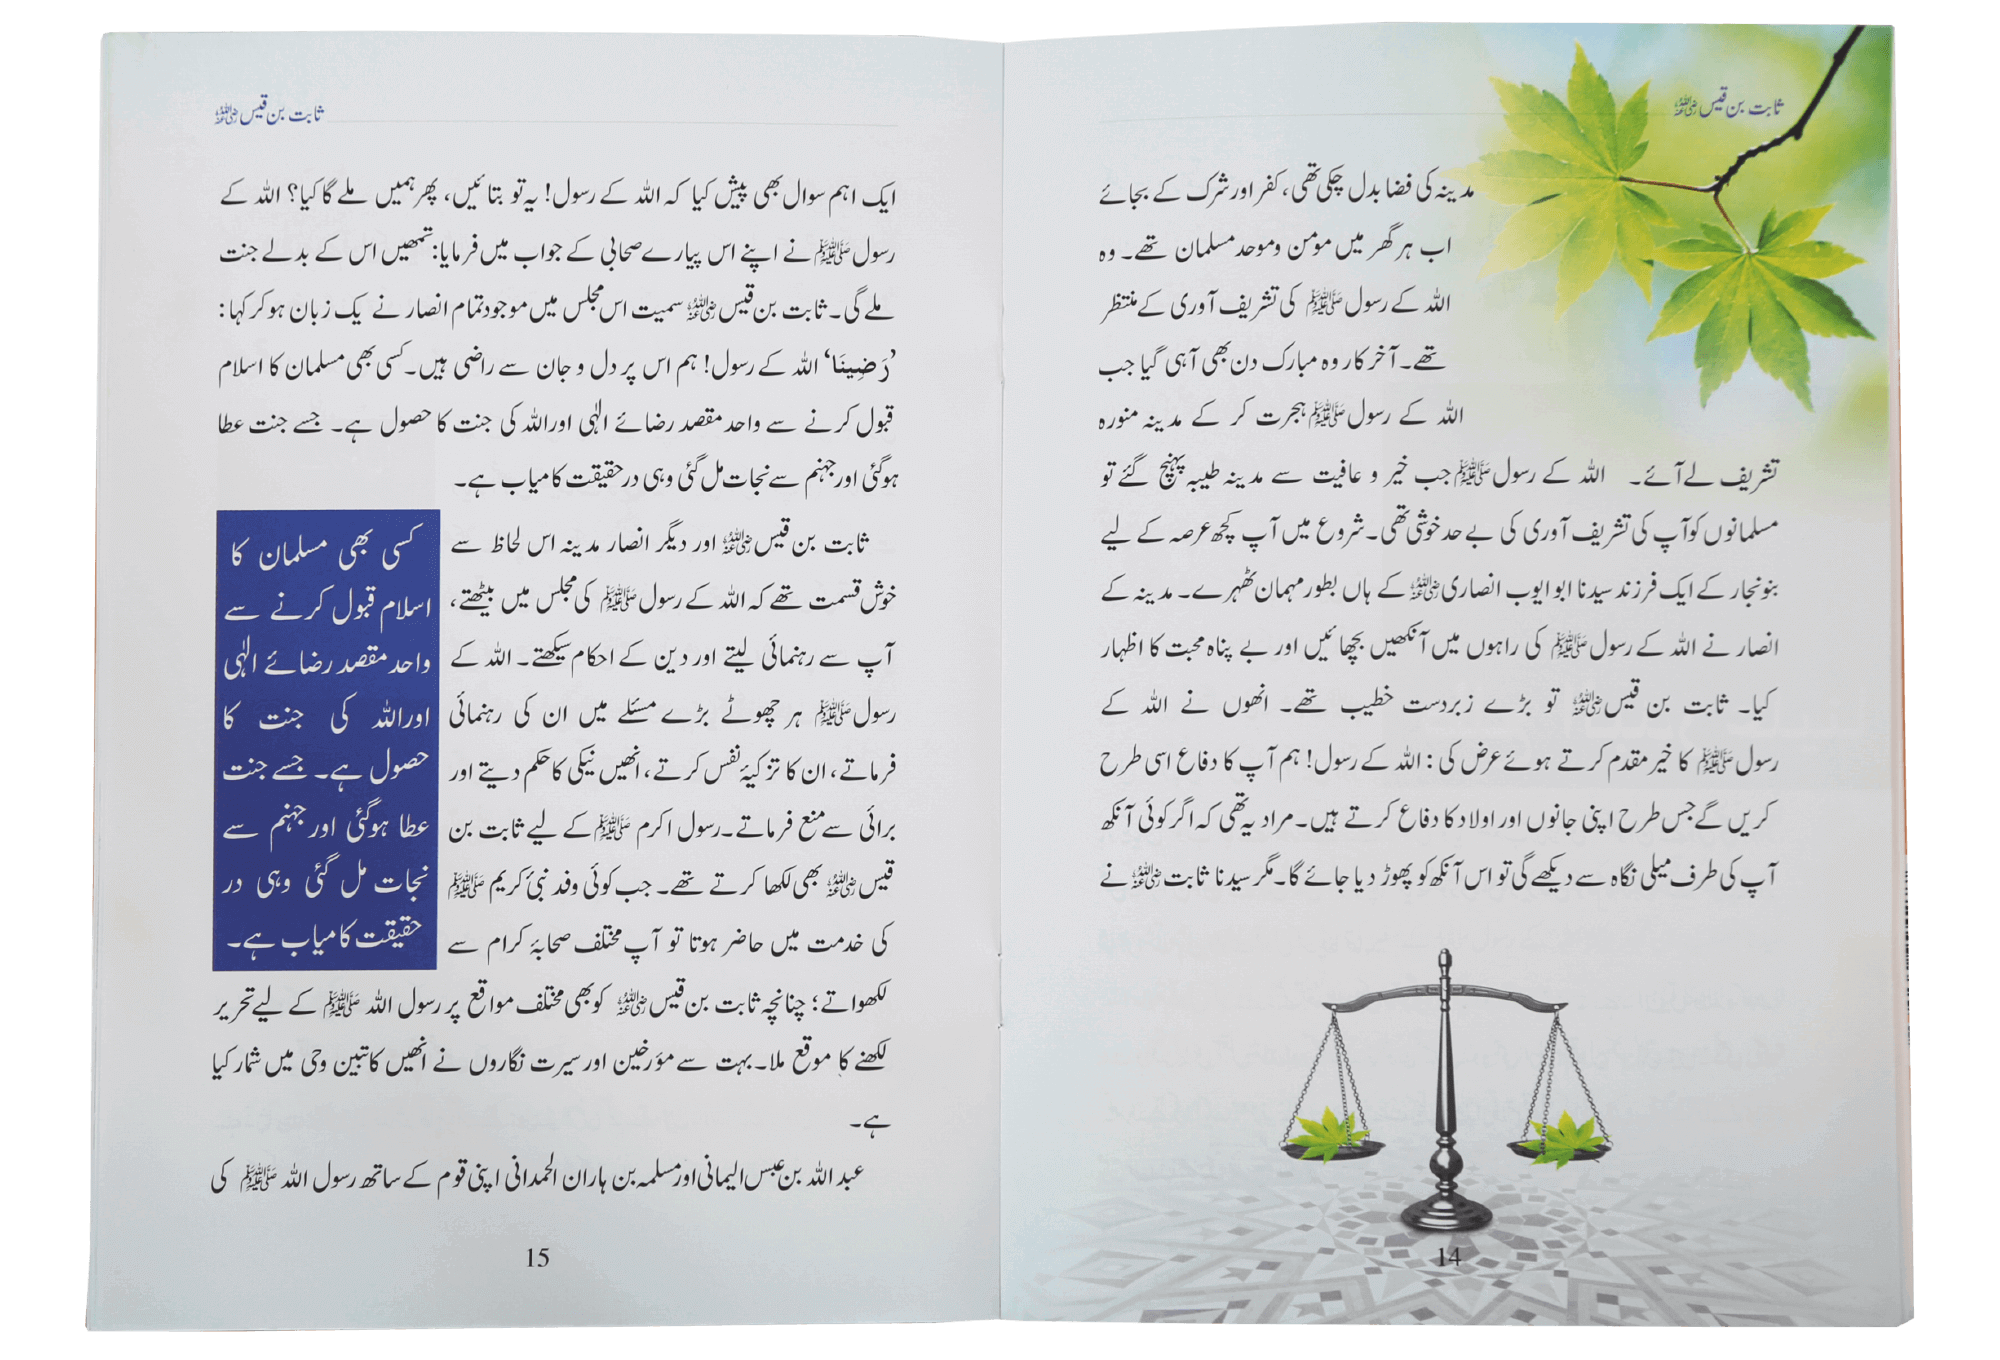 ثابت بن قیس رضی اللہ عنہ
مدینہ کی فضا بدل چکی تھی، کفر اور شرک کے بجائے
اب ہر گھر میں مومن وموحد مسلمان تھے۔ وہ
اللہ کے رسول ﷺ کی تشریف آوری کے منتظر
تھے۔ آخر کار وہ مبارک دن بھی آہی گیا جب
اللہ کے رسول ﷺ ہجرت کر کے مدینہ منورہ
تشریف لے آئے۔ اللہ کے رسول ﷺ جب خیر و عافیت سے مدینہ طیبہ پہنچ گئے تو
مسلمانوں کو آپ کی تشریف آوری کی بے حد خوشی تھی۔ شروع میں آپ کچھ عرصہ کے لیے
بنو نجار کے ایک فرزند سیدنا ابو ایوب انصاری رضی اللہ عنہ کے ہاں بطور مہمان ٹھہرے۔ مدینہ کے
انصار نے اللہ کے رسول ﷺ کی راہوں میں آنکھیں بچھائیں اور بے پناہ محبت کا اظہار
کیا۔ ثابت بن قیس رضی اللہ عنہ تو بڑے زبردست خطیب تھے۔ انھوں نے اللہ کے
رسول ﷺ کا خیر مقدم کرتے ہوئے عرض کی: اللہ کے رسول! ہم آپ کا دفاع اسی طرح
کریں گے جس طرح اپنی جانوں اور اولاد کا دفاع کرتے ہیں۔ مراد یہ تھی کہ اگر کوئی آنکھ
آپ کی طرف میلی نگاہ سے دیکھے گی تو اس آنکھ کو پھوڑ دیا جائے گا۔ مگر سیدنا ثابت رضی اللہ عنہ نے
14
ثابت بن قیس رضی اللہ عنہ
ایک اہم سوال بھی پیش کیا کہ اللہ کے رسول! یہ تو بتائیں، پھر ہمیں ملے گا کیا؟ اللہ کے
رسول ﷺ نے اپنے اس پیارے صحابی کے جواب میں فرمایا: تمھیں اس کے بدلے جنت
ملے گی۔ ثابت بن قیس رضی اللہ عنہ سمیت اس مجلس میں موجود تمام انصار نے یک زبان ہو کر کہا:
’رَضِينَا‘ اللہ کے رسول! ہم اس پر دل و جان سے راضی ہیں۔ کسی بھی مسلمان کا اسلام
قبول کرنے سے واحد مقصد رضائے الٰہی اور اللہ کی جنت کا حصول ہے۔ جسے جنت عطا
ہوگئی اور جہنم سے نجات مل گئی وہی در حقیقت کامیاب ہے۔
ثابت بن قیس رضی اللہ عنہ اور دیگر انصار مدینہ اس لحاظ سے
خوش قسمت تھے کہ اللہ کے رسول ﷺ کی مجلس میں بیٹھتے،
آپ سے رہنمائی لیتے اور دین کے احکام سیکھتے۔ اللہ کے
رسول ﷺ ہر چھوٹے بڑے مسئلے میں ان کی رہنمائی
فرماتے، ان کا تزکیۂ نفس کرتے، انھیں نیکی کا حکم دیتے اور
برائی سے منع فرماتے۔ رسول اکرم ﷺ کے لیے ثابت بن
قیس رضی اللہ عنہ بھی لکھا کرتے تھے۔ جب کوئی وفد نبیٔ کریم ﷺ
کی خدمت میں حاضر ہوتا تو آپ مختلف صحابۂ کرام سے
لکھواتے؛ چنانچہ ثابت بن قیس رضی اللہ عنہ کو بھی مختلف مواقع پر رسول اللہ ﷺ کے لیے تحریر
لکھنے کا موقع ملا۔ بہت سے مؤرخین اور سیرت نگاروں نے انھیں کاتبین وحی میں شمار کیا
ہے۔
عبد اللہ بن عبس الیمانی اور مسلمہ بن ہاران الحمدانی اپنی قوم کے ساتھ رسول اللہ ﷺ کی
کسی بھی مسلمان کا
اسلام قبول کرنے سے
واحد مقصد رضائے الٰہی
اور اللہ کی جنت کا
حصول ہے۔ جسے جنت
عطا ہوگئی اور جہنم سے
نجات مل گئی وہی در
حقیقت کامیاب ہے۔
15